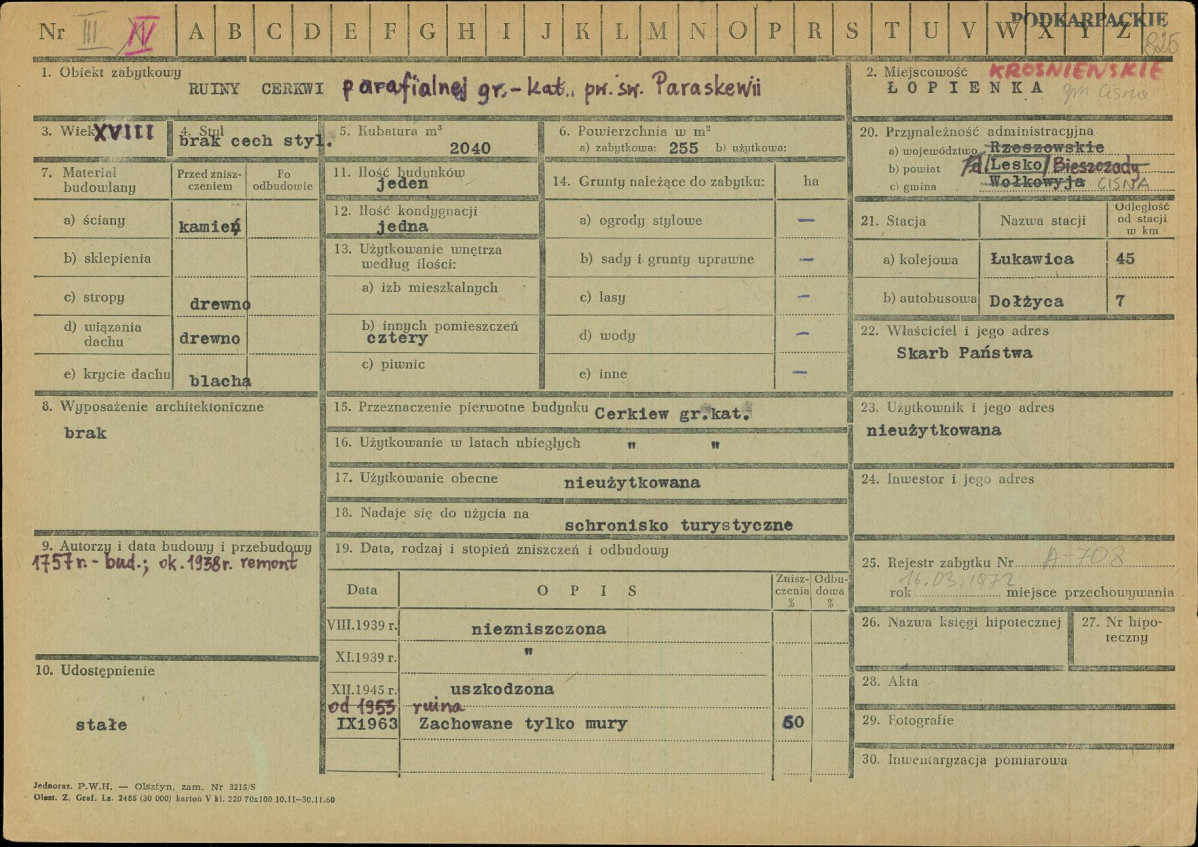 Nr III IV A B C D E F G H I J K L M N O P R S T U V W X Y Z
PODKARPACKIE
825
1. Obiekt zabytkowy
RUINY CERKWI parafialnej gr.-kat., pw. św. Paraskewii
2. Miejscowość KROŚNIEŃSKIE
ŁOPIENKA gm Cisna
3. Wiek XVIII
4. Styl
brak cech styl.
5. Kubatura m³
2040
6. Powierzchnia w m²
a) zabytkowa: 255 b) użytkowa:
7. Materiał budowlany
Przed zniszczeniem
Po odbudowie
a) ściany kamień
b) sklepienia
c) stropy drewno
d) wiązania dachu drewno
e) krycie dachu blacha
8. Wyposażenie architektoniczne
brak
9. Autorzy i data budowy i przebudowy
1757r.- bud.; ok.1938r. remont
10. Udostępnienie
stałe
11. Ilość budynków
jeden
12. Ilość kondygnacji
jedna
13. Użytkowanie wnętrza według ilości:
a) izb mieszkalnych
b) innych pomieszczeń
cztery
c) piwnic
14. Grunty należące do zabytku: ha
a) ogrody stylowe —
b) sady i grunty uprawne —
c) lasy —
d) wody —
e) inne —
15. Przeznaczenie pierwotne budynku Cerkiew gr.kat.
16. Użytkowanie w latach ubiegłych " "
17. Użytkowanie obecne nieużytkowana
18. Nadaje się do użycia na
schronisko turystyczne
19. Data, rodzaj i stopień zniszczeń i odbudowy
Data OPIS Zniszczenia % Odbudowa %
VIII.1939 r. niezniszczona
XI.1939 r. "
XII.1945 r. uszkodzona
od 1953 ruina
IX1963 Zachowane tylko mury 60
20. Przynależność administracyjna
a) województwo Rzeszowskie
b) powiat /Lesko/ Bieszczady
c) gmina Wołkowyja CISNA
21. Stacja Nazwa stacji Odległość od stacji w km
a) kolejowa Łukawica 45
b) autobusowa Dołżyca 7
22. Właściciel i jego adres
Skarb Państwa
23. Użytkownik i jego adres
nieużytkowana
24. Inwestor i jego adres
25. Rejestr zabytku Nr A-708
rok 16.03.1972 miejsce przechowywania
26. Nazwa księgi hipotecznej
27. Nr hipoteczny
28. Akta
29. Fotografie
30. Inwentaryzacja pomiarowa
Jednoraz. P.W.H. — Olsztyn, zam. Nr 3215/S
Olszt. Z. Graf. Lz. 2485 (30 000) karton V kl. 220 70x100 10.11—30.11.60